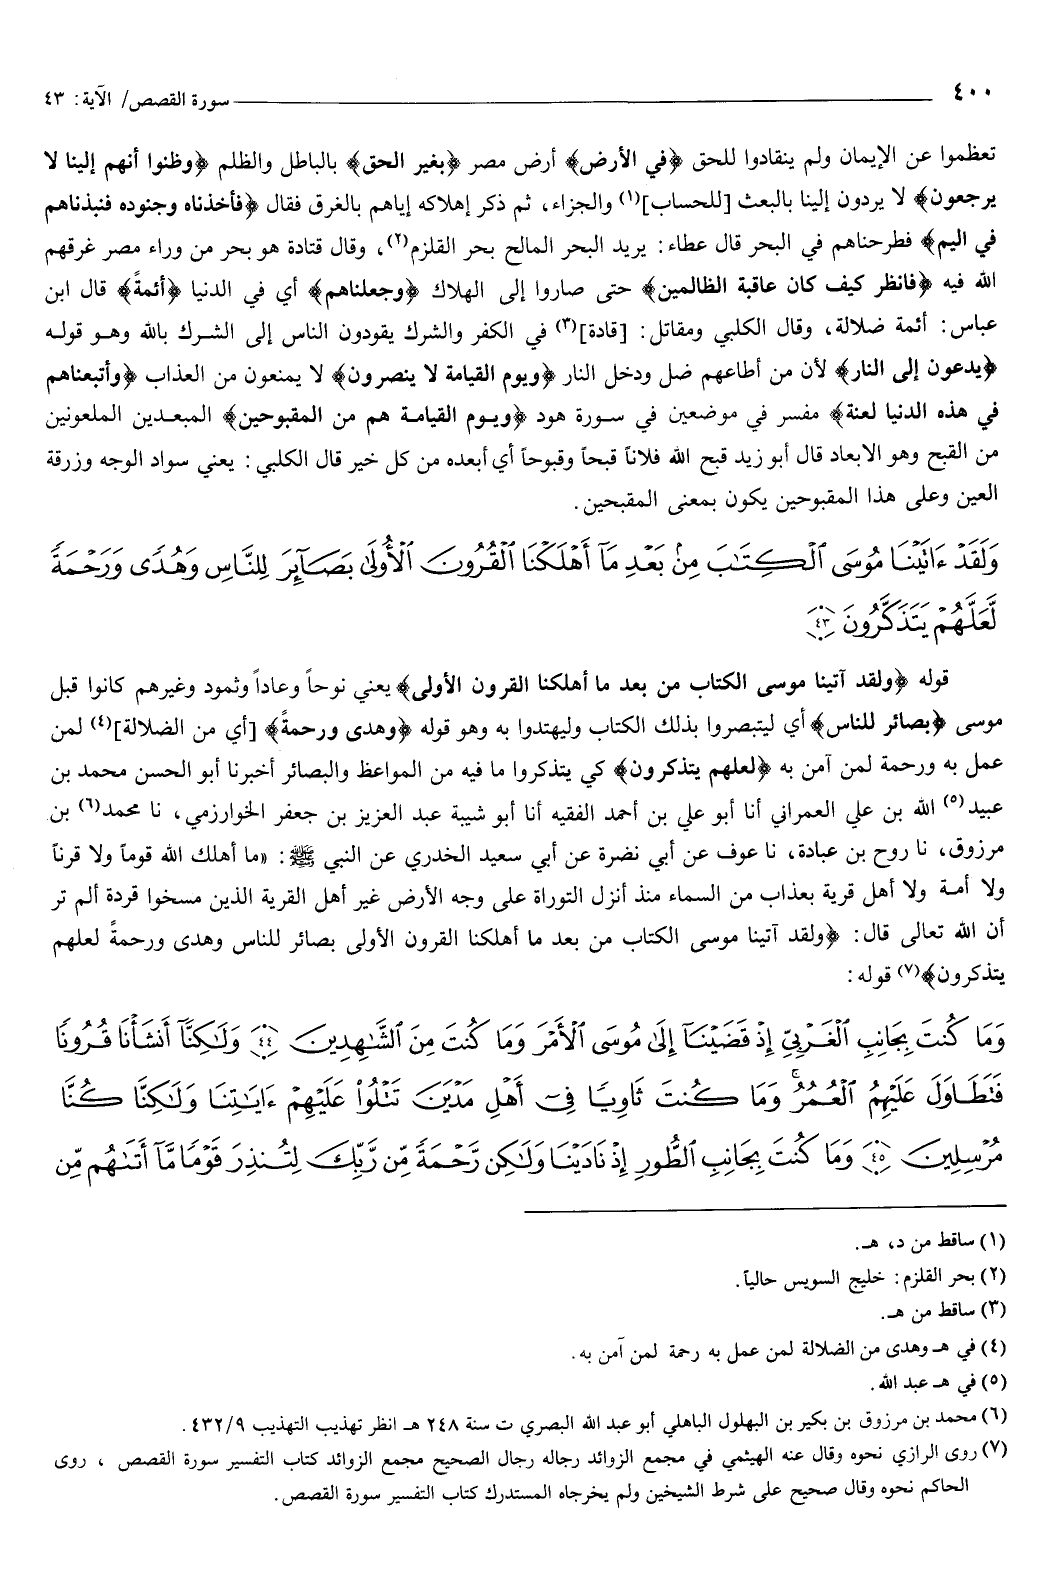 ٤٠٠ سورة القصص/ الآية: ٤٣
تعظموا عن الإيمان ولم ينقادوا للحق ﴿في الأرض﴾ أرض مصر ﴿بغير الحق﴾ بالباطل والظلم ﴿وظنوا أنهم إلينا لا
يرجعون﴾ لا يردون إلينا بالبعث [للحساب](١) والجزاء، ثم ذكر إهلاكه إياهم بالغرق فقال ﴿فأخذناه وجنوده فنبذناهم
في اليم﴾ فطرحناهم في البحر قال عطاء: يريد البحر المالح بحر القلزم(٢)، وقال قتادة هو بحر من وراء مصر غرقهم
الله فيه ﴿فانظر كيف كان عاقبة الظالمين﴾ حتى صاروا إلى الهلاك ﴿وجعلناهم﴾ أي في الدنيا ﴿أئمةً﴾ قال ابن
عباس: أئمة ضلالة، وقال الكلبي ومقاتل: [قادة](٣) في الكفر والشرك يقودون الناس إلى الشرك بالله وهو قوله
﴿يدعون إلى النار﴾ لأن من أطاعهم ضل ودخل النار ﴿ويوم القيامة لا ينصرون﴾ لا يمنعون من العذاب ﴿وأتبعناهم
في هذه الدنيا لعنة﴾ مفسر في موضعين في سورة هود ﴿ويوم القيامة هم من المقبوحين﴾ المبعدين الملعونين
من القبح وهو الابعاد قال أبو زيد قبح الله فلاناً قبحاً وقبوحاً أي أبعده من كل خير قال الكلبي: يعني سواد الوجه وزرقة
العين وعلى هذا المقبوحين يكون بمعنى المقبحين.
وَلَقَدْ ءَاتَيْنَا مُوسَى ٱلْكِتَٰبَ مِنۢ بَعْدِ مَآ أَهْلَكْنَا ٱلْقُرُونَ ٱلْأُولَىٰ بَصَآئِرَ لِلنَّاسِ وَهُدًى وَرَحْمَةً
لَّعَلَّهُمْ يَتَذَكَّرُونَ ٤٣
قوله ﴿ولقد آتينا موسى الكتاب من بعد ما أهلكنا القرون الأولى﴾ يعني نوحاً وعاداً وثمود وغيرهم كانوا قبل
موسى ﴿بصائر للناس﴾ أي ليتبصروا بذلك الكتاب وليهتدوا به وهو قوله ﴿وهدى ورحمةً﴾ [أي من الضلالة](٤) لمن
عمل به ورحمة لمن آمن به ﴿لعلهم يتذكرون﴾ كي يتذكروا ما فيه من المواعظ والبصائر أخبرنا أبو الحسن محمد بن
عبيد(٥) الله بن علي العمراني أنا أبو علي بن أحمد الفقيه أنا أبو شيبة عبد العزيز بن جعفر الخوارزمي، نا محمد(٦) بن
مرزوق، نا روح بن عبادة، نا عوف عن أبي نضرة عن أبي سعيد الخدري عن النبي ﷺ: «ما أهلك الله قوماً ولا قرناً
ولا أمة ولا أهل قرية بعذاب من السماء منذ أنزل التوراة على وجه الأرض غير أهل القرية الذين مسخوا قردة ألم تر
أن الله تعالى قال: ﴿ولقد آتينا موسى الكتاب من بعد ما أهلكنا القرون الأولى بصائر للناس وهدى ورحمةً لعلهم
يتذكرون﴾(٧) قوله:
وَمَا كُنتَ بِجَانِبِ ٱلْغَرْبِيِّ إِذْ قَضَيْنَآ إِلَىٰ مُوسَى ٱلْأَمْرَ وَمَا كُنتَ مِنَ ٱلشَّٰهِدِينَ ٤٤ وَلَٰكِنَّآ أَنشَأْنَا قُرُونًا
فَتَطَاوَلَ عَلَيْهِمُ ٱلْعُمُرُ ۚ وَمَا كُنتَ ثَاوِيًا فِىٓ أَهْلِ مَدْيَنَ تَتْلُوا۟ عَلَيْهِمْ ءَايَٰتِنَا وَلَٰكِنَّا كُنَّا
مُرْسِلِينَ ٤٥ وَمَا كُنتَ بِجَانِبِ ٱلطُّورِ إِذْ نَادَيْنَا وَلَٰكِن رَّحْمَةً مِّن رَّبِّكَ لِتُنذِرَ قَوْمًا مَّآ أَتَىٰهُم مِّن
(١) ساقط من د، هـ.
(٢) بحر القلزم: خليج السويس حالياً.
(٣) ساقط من هـ.
(٤) في هـ وهدى من الضلالة لمن عمل به رحمة لمن آمن به.
(٥) في هـ عبد الله.
(٦) محمد بن مرزوق بن بكير بن البهلول الباهلي أبو عبد الله البصري ت سنة ٢٤٨ هـ انظر تهذيب التهذيب ٤٣٢/٩.
(٧) روى الرازي نحوه وقال عنه الهيثمي في مجمع الزوائد رجاله رجال الصحيح مجمع الزوائد كتاب التفسير سورة القصص ، روى
الحاكم نحوه وقال صحيح على شرط الشيخين ولم يخرجاه المستدرك كتاب التفسير سورة القصص.